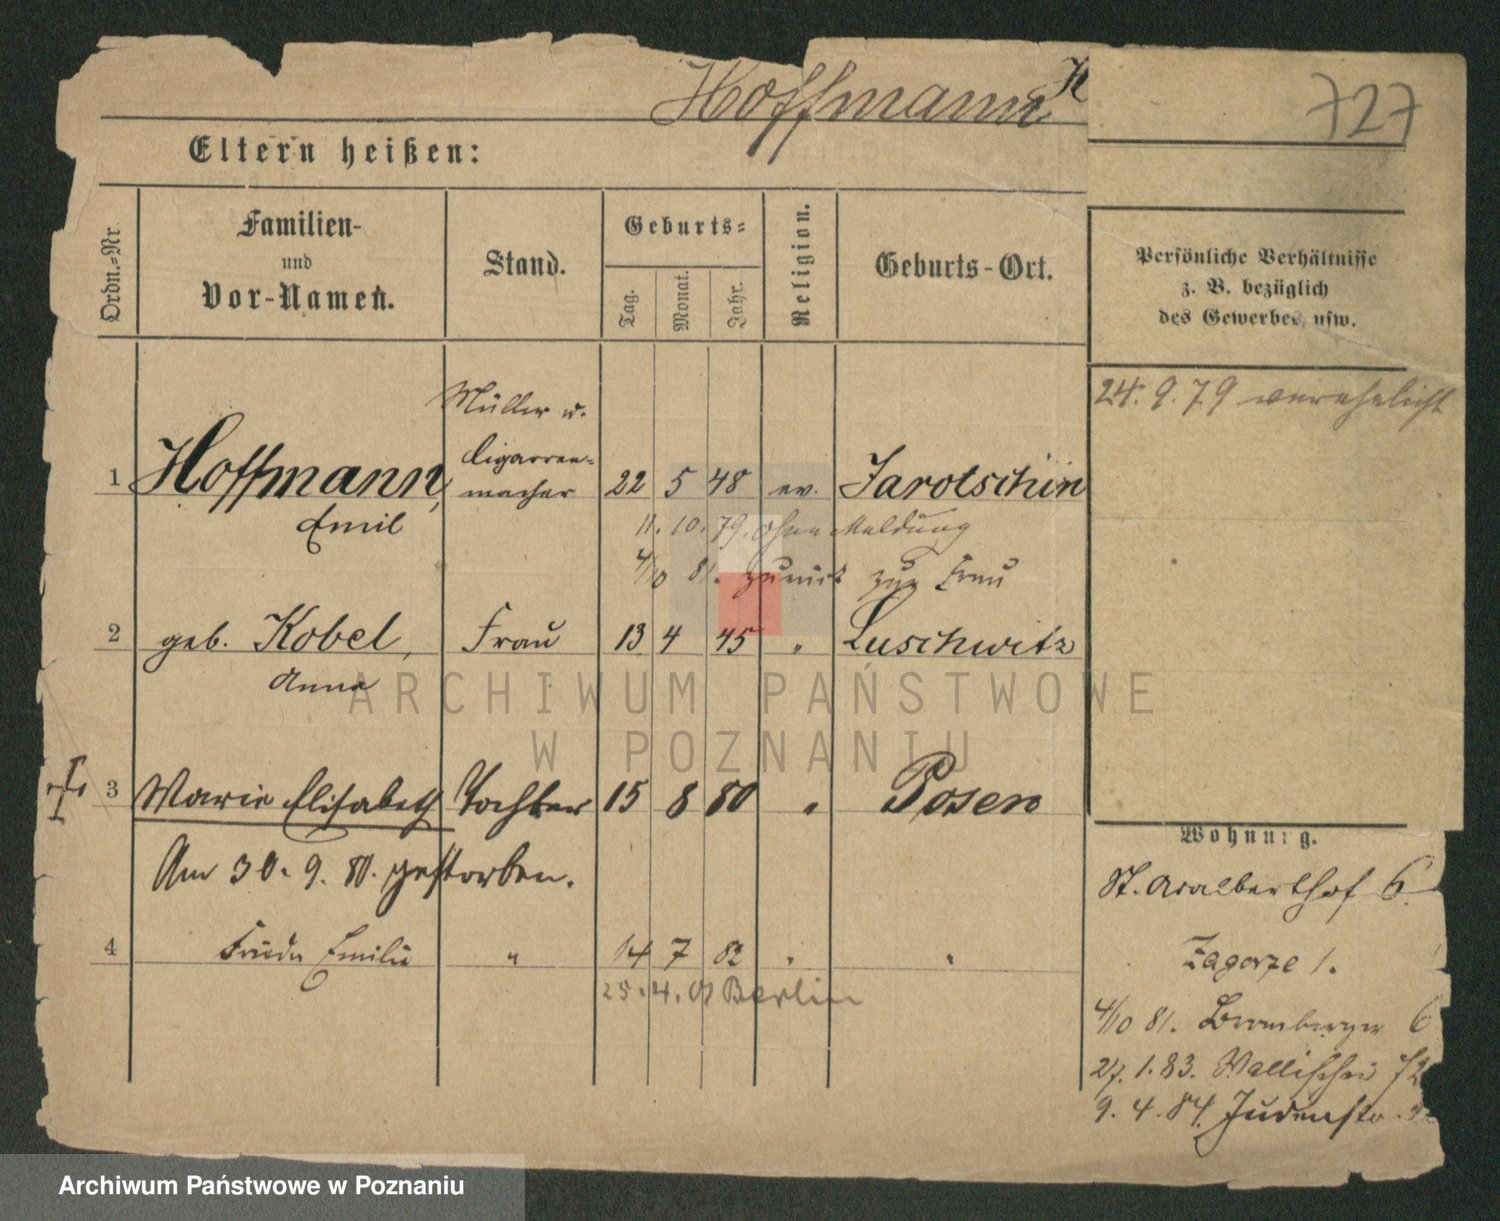 Hoffmann
H
727
Eltern heißen:
Ordn.=Nr.
Familien-
und
Vor-Namen.
Stand.
Geburts=
Tag.
Monat.
Jahr.
Religion.
Geburts-Ort.
Persönliche Verhältnisse
z. B. bezüglich
des Gewerbes usw.
24. 9. 79 verehelicht
Müller u.
Cigarren=
1 Hoffmann, macher 22 5 48 ev. Jarotschin
Emil
11. 10. 79. ohne Meldung
4/10 81. zurück zur Frau
2 geb. Kobel, Frau 13 4 45 " Luschwitz
Anna
3 Marie Elisabeth Tochter 15 8 80 " Posen
Am 30. 9. 80. gestorben.
4 Frieda Emilie " 14 7 82 " "
25. 4. 01 Berlin
Wohnung.
St. Adalberthof 6.
Zagorze 1.
4/10 81. Bromberger 6
27. 1. 83. Wallischei 72
9. 4. 84. Judenstr.
ARCHIWUM PAŃSTWOWE
W POZNANIU
Archiwum Państwowe w Poznaniu